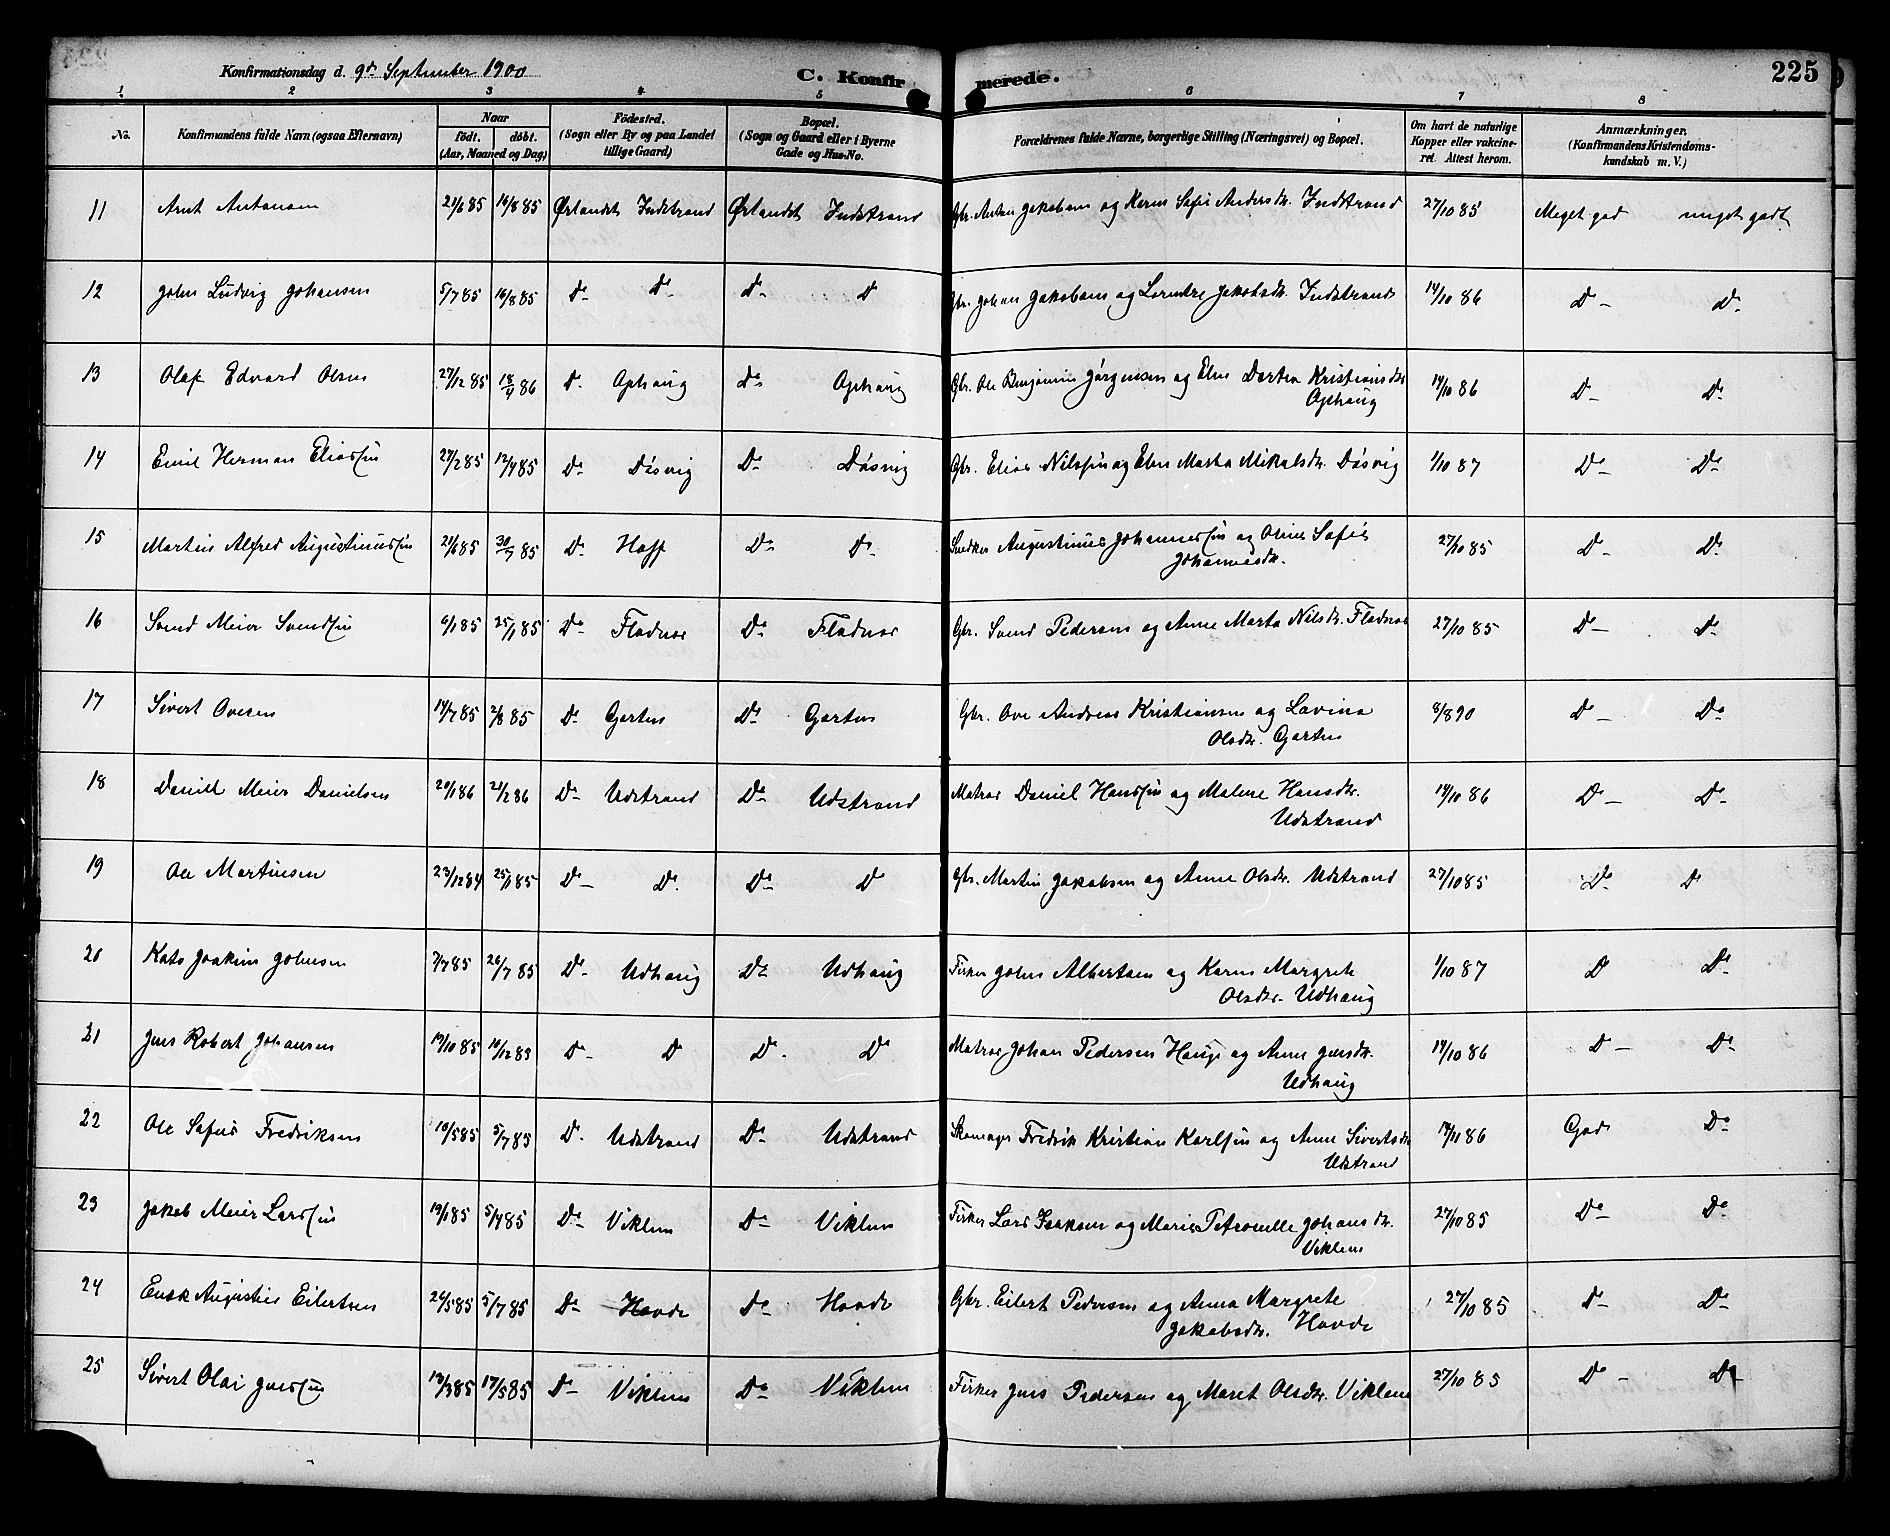 Konfirmationsdag d. 9de September 1900
C. Konfirmerede.
225
1 2 3 4 5 6 7 8
No.
Konfirmandens fulde Navn (ogsaa Efternavn)
Naar
födt. döbt.
(Aar, Maaned og Dag)
Födested.
(Sogn eller By og paa Landet
tillige Gaard)
Bopæl.
(Sogn og Gaard eller i Byerne
Gade og Hus-No.
Forældrenes fulde Navne, borgerlige Stilling (Næringsvei) og Bopæl.
Om havt de naturlige
Kopper eller vakcine-
ret. Attest herom.
Anmærkninger.
(Konfirmandens Kristendoms-
kundskab m. V.)
11 Arnt Antonsen 21/6 85 16/8 85 Ørlandet Indstrand Ørlandet Indstrand Gbr. Anton Jakobsen og Karen Sofie Andersdr. Indstrand 27/10 85 Meget god meget godt
12 Johan Ludvig Johansen 5/7 85 16/8 85 Do Do Do Do Gbr. Johan Jakobsen og Jakobsdr. Indstrand 14/10 86 Do Do
13 Olaf Edvard Olsen 27/12 85 18/4 86 Do Ophaug Do Ophaug Gbr. Ole Benjamin Jörgensen og Elen Dortea Kristiansdr.
Ophaug 14/10 86 Do Do
14 Emil Herman Eliassen 27/2 85 12/4 85 Do Dösvig Do Dösvig Gbr. Elias Nilssen og Elen Marta Mikalsdr. Dösvig 1/10 87 Do Do
15 Martin Alfred Augustinussen 21/6 85 30/7 85 Do Hoff Do Do Snedker Augustinus Johannessen og Oline Sofie
Johannesdr. 27/10 85 Do Do
16 Svend Meier Svendsen 6/1 85 25/1 85 Do Fladnes Do Fladnes Gbr. Svend Pedersen og Anne Marta Nilsdr. Fladnes 27/10 85 Do Do
17 Sivert Ovesen 14/7 85 2/8 85 Do Garten Do Garten Gbr. Ove Andreas Kristiansen og Lavina
Olsdr. Garten 8/8 90 Do Do
18 Daniel Meier Danielsen 20/1 86 21/2 86 Do Udstrand Do Udstrand Matros Daniel Hanssen og Malene Hansdr.
Udstrand 14/10 86 Do Do
19 Ole Martinsen 23/12 84 25/1 85 Do Do Do Do Gbr. Martin Jakobsen og Anne Olsdr. Udstrand 27/10 85 Do Do
20 Kato Joakim Johnsen 7/7 85 26/7 85 Do Udhaug Do Udhaug Fisker John Albertsen og Karen Margrete
Olsdr. Udhaug 1/10 87 Do Do
21 Jens Robert Johansen 19/10 85 10/12 85 Do Do Do Do Matros Johan Pedersen Hauge og Anne Jensdr.
Udhaug 14/10 86 Do Do
22 Ole Sofus Fredriksen 10/5 85 5/7 85 Do Udstrand Do Udstrand Skomager Fredrik Kristian Karlsen og Anne Sivertsdr.
Udstrand 14/11 86 God Do
23 Jakob Meier Larssen 19/1 85 5/4 85 Do Viklem Do Viklem Fisker Lars Isaksen og Marie Petronelle Johansdr.
Viklem 27/10 85 Do Do
24 Augustin Eilertsen 24/5 85 5/7 85 Do Hovde Do Hovde Gbr. Eilert Pedersen og Anna Margrete
Jakobsdr. Hovde 27/10 85 Do Do
25 Sivert Olai Jenssen 19/3 85 17/5 85 Do Viklem Do Viklem Fisker Jens Pedersen og Maret Olsdr. Viklem 27/10 85 Do Do